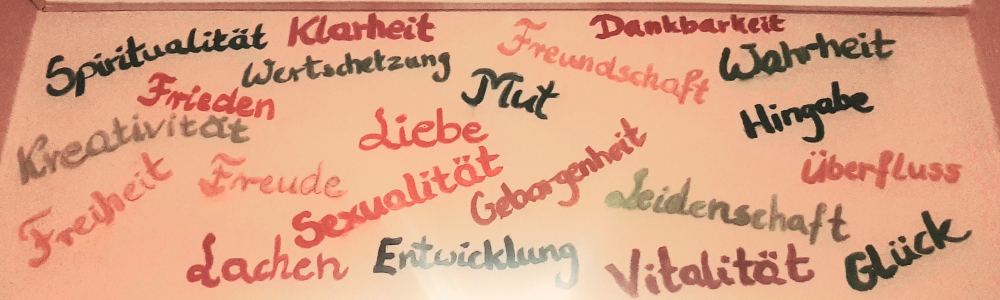 Spiritualität
Klarheit
Dankbarkeit
Wertschetzung
Freundschaft
Wahrheit
Frieden
Mut
Hingabe
Kreativität
Liebe
Freiheit
Freude
Sexualität
Geborgenheit
Überfluss
Leidenschaft
Lachen
Entwicklung
Vitalität
Glück